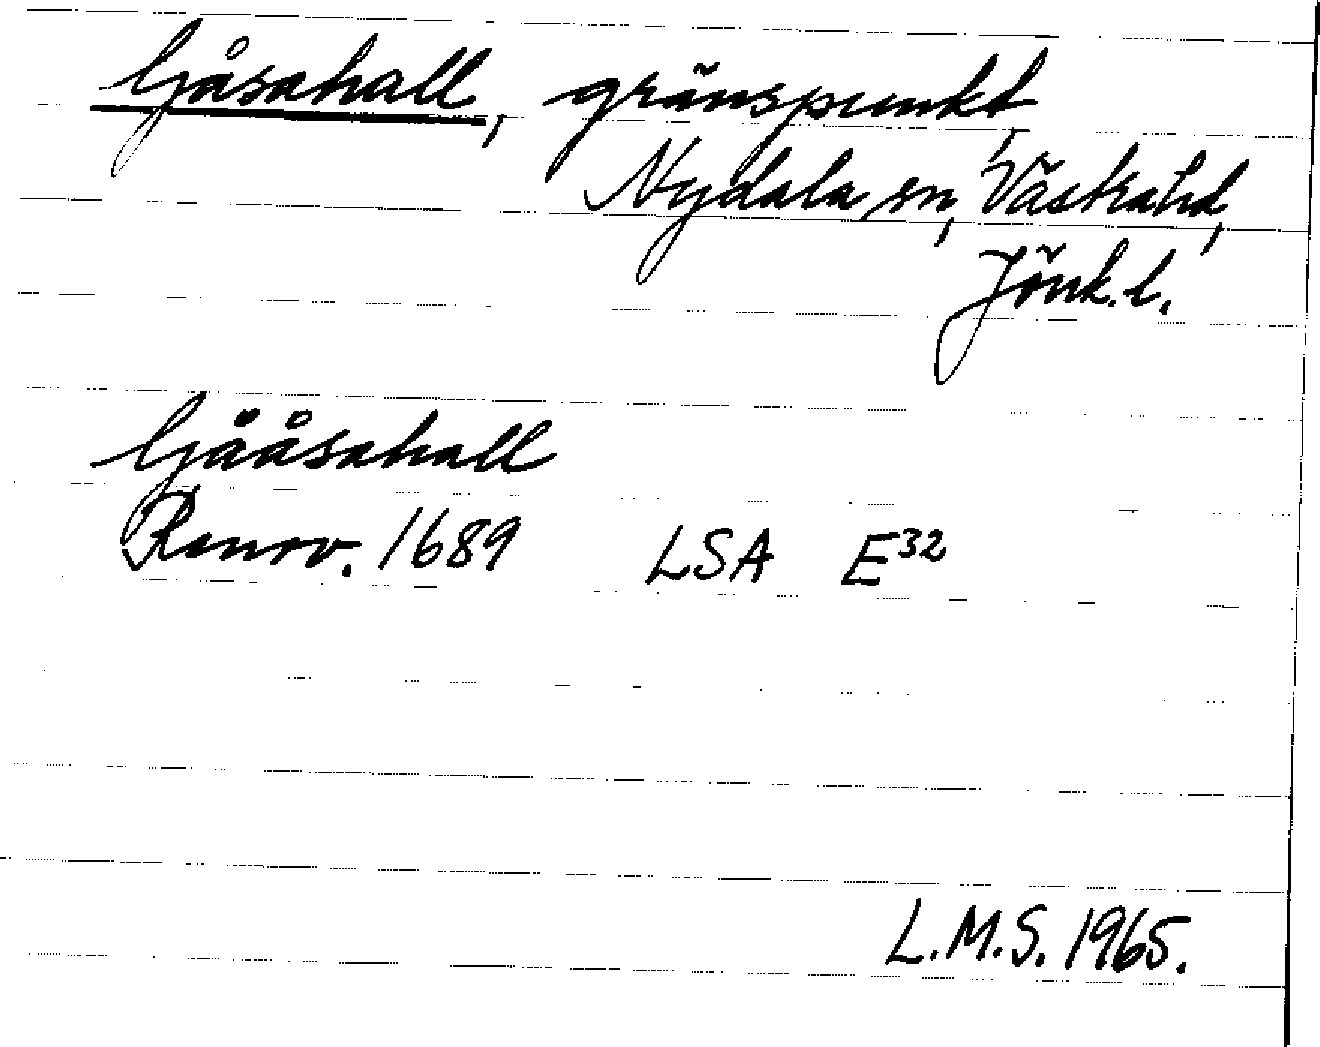 Gåsahall, gränspunkt,
Nydala sn, Västra hd,
Jönk. l.
Gååsahall
Renov. 1689 LSA E32
L.M.S. 1965.